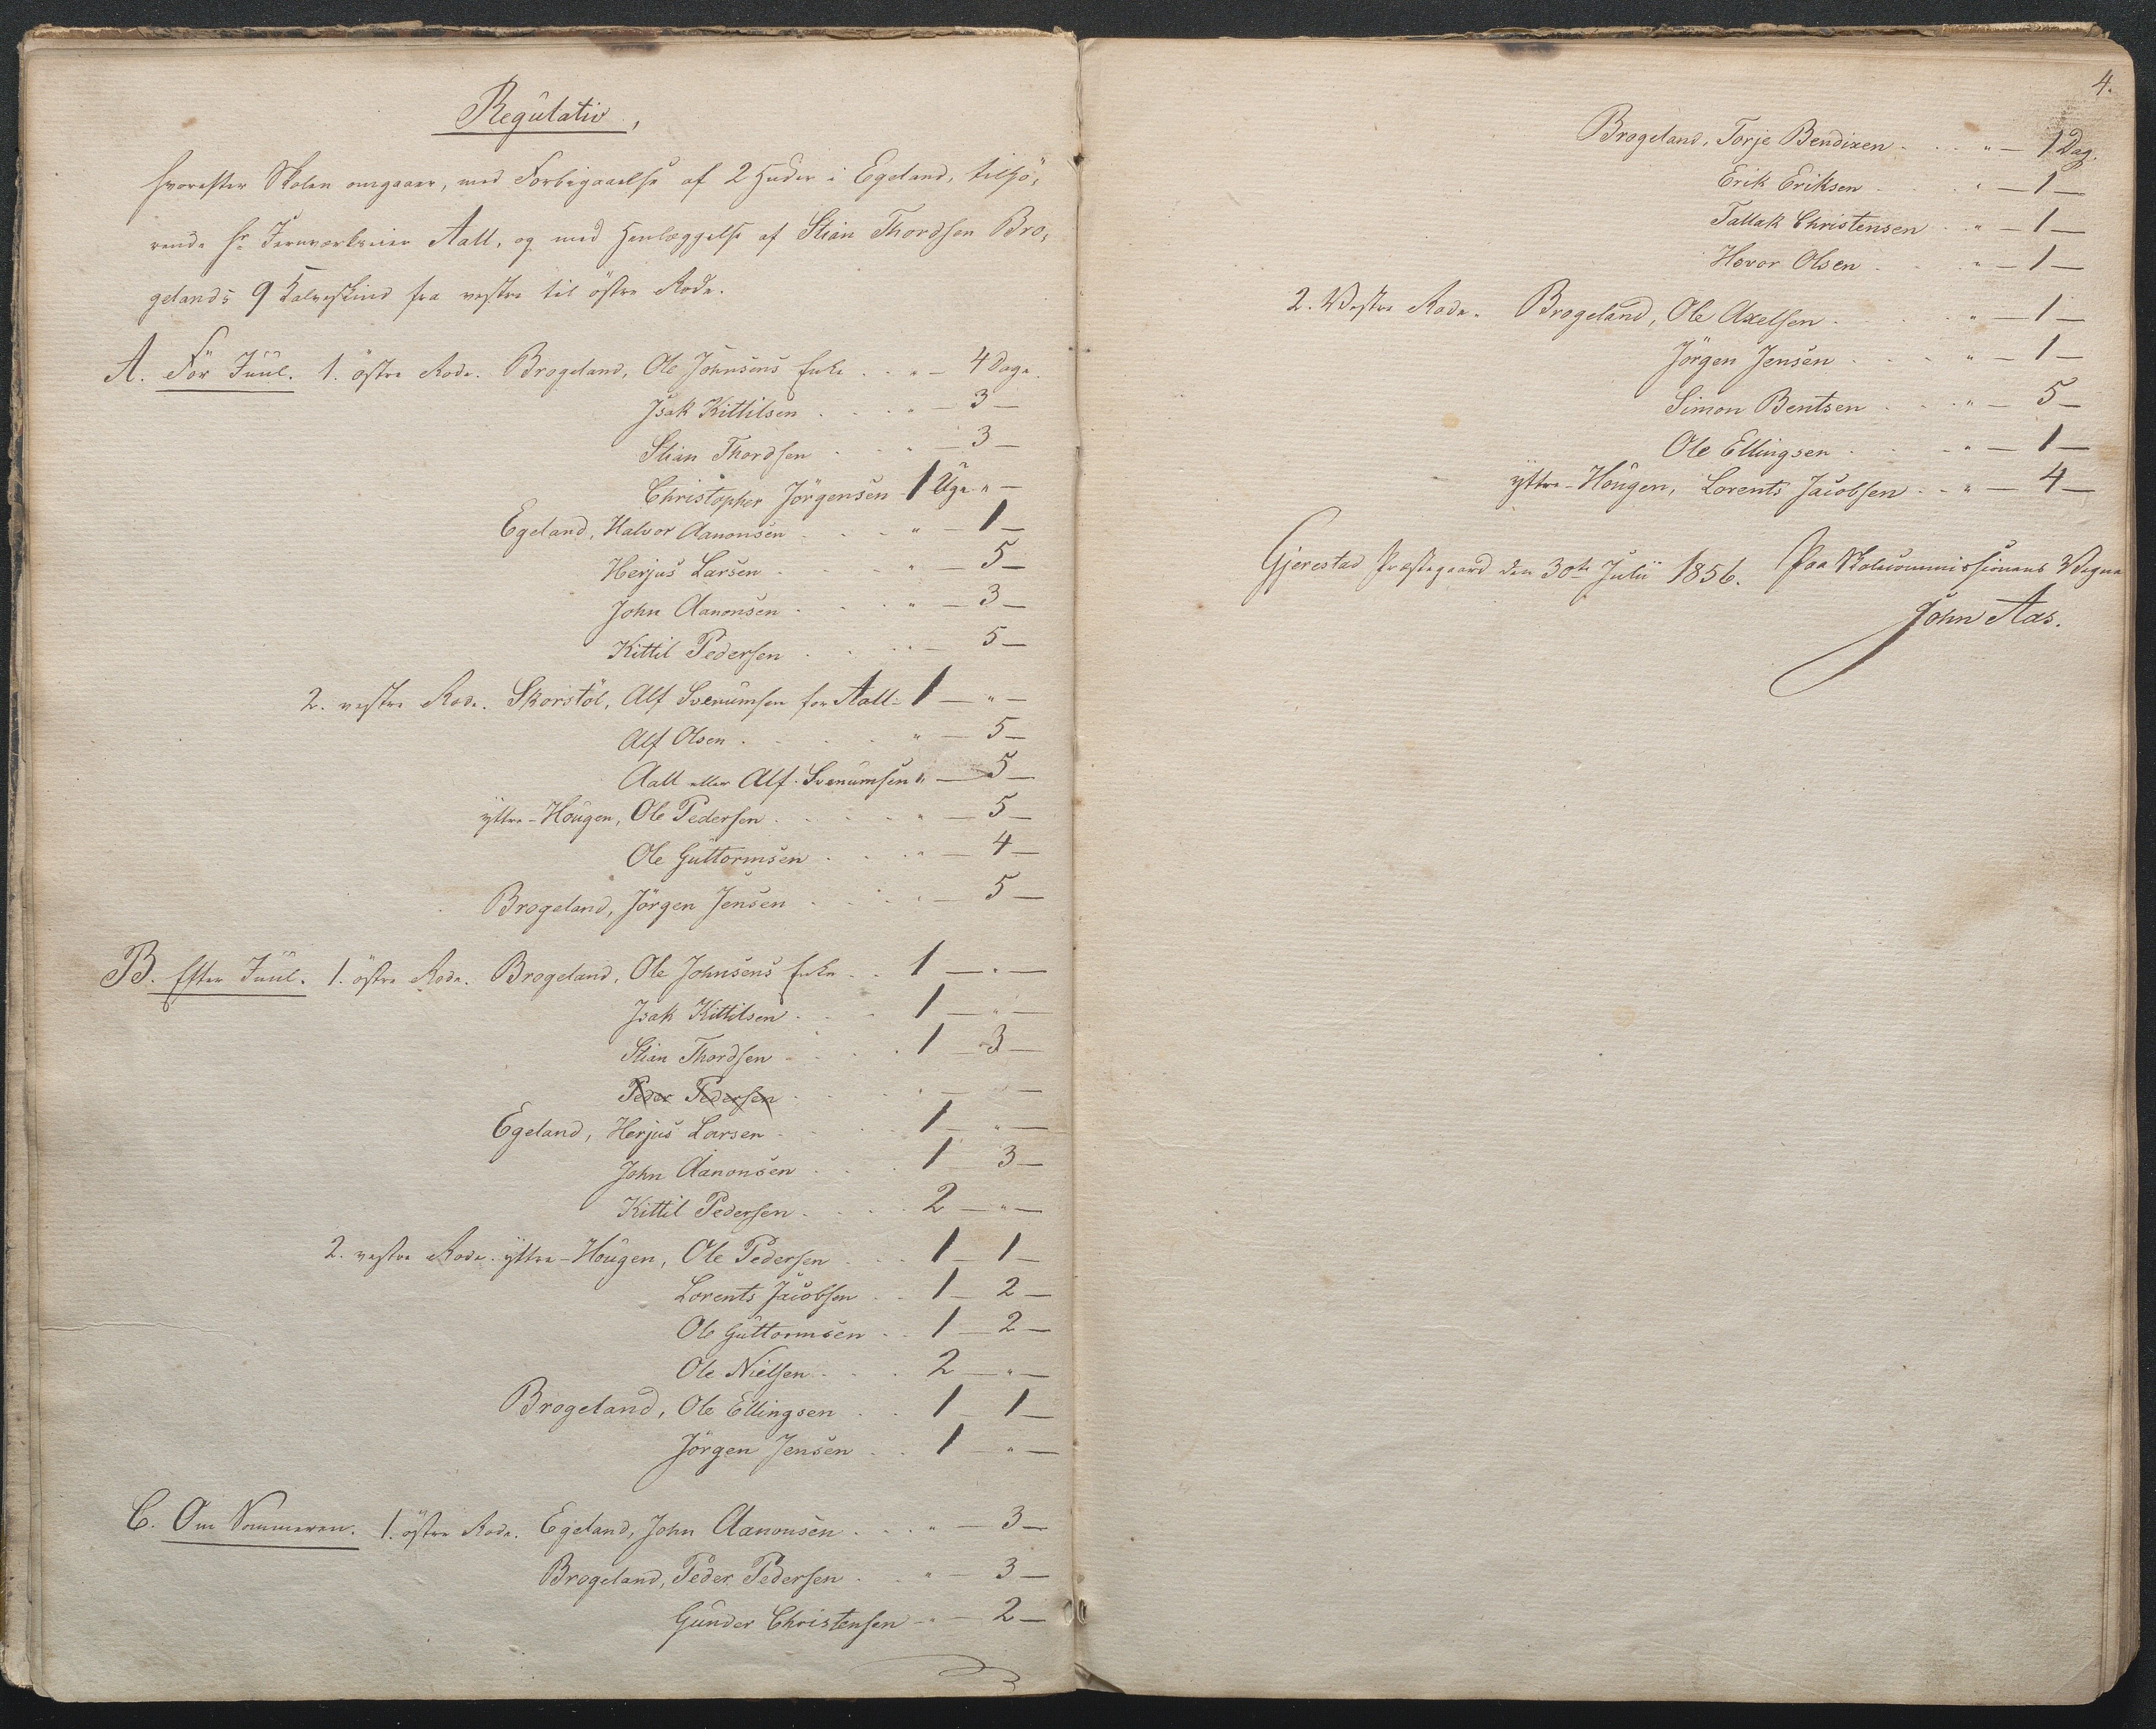 Regulativ,
hvorefter Skolen omgaaer, med Forbigaaelse af 2 Huder i Egeland, tilhö-
rende Hr. Jernværkseier Aall, og med Henlæggelse af Stian Thordsen Bro-
gelands 9 Kalveskind fra vestre til östre Rode.
A.För Juul. 1. östre Rode. Brogeland, Ole Johnsens Enke . . " — 4 Dage.
Isak Kittilsen . . . " — 3 —
Stian Thordsen . . " — 3 —
Christopher Jörgensen 1 Uge " —
Egeland, Halvor Aanonsen . . . " — 1 —
Herjus Larsen . . . " — 5 —
John Aanonsen . . . " — 3 —
Kittil Pedersen . . . " — 5 —
2. vestre Rode. Skorstöl, Alf Svenumsen for Aall - 1 — " —
Alf Olsen . . . . " — 5 —
Aall eller Alf Svenumsen " — 5 —
yttre-Hougen, Ole Pedersen . . . . " — 5 —
Ole Guttormsen . . . " — 4 —
Brogeland, Jörgen Jensen . . . " — 5 —
B. Efter Juul. 1. östre Rode. Brogeland, Ole Johnsens Enke . . 1 — " —
Isak Kittilsen . . . 1 — " —
Stian Thordsen . . . 1 — 3 —
Peder Pedersen . . . " — —
Egeland, Herjus Larsen . . . 1 — " —
John Aanonsen . . . 1 — 3 —
Kittil Pedersen . . . 2 — " —
2. vestre Rode. yttre-Hougen, Ole Pedersen . . . 1 — 1 —
Lorents Jacobsen . . 1 — 2 —
Ole Guttormsen . . 1 — 2 —
Ole Nielsen . . . 2 — " —
Brogeland, Ole Ellingsen . . 1 — 1 —
Jörgen Jensen . . 1 — " —
C. Om Sommeren. 1. östre Rode. Egeland, John Aanonsen . . . " — 3 —
Brogeland, Peder Pedersen . . " — 3 —
Gunder Christensen - " — 2 —
4.
Brogeland, Torje Bendixen . . . " — 1 Dag.
Erik Eriksen . . . " — 1 —
Tallak Christensen . . " — 1 —
Hovor Olsen . . . " — 1 —
2. Vestre Rode. Brogeland, Ole Axelsen . . . . " — 1 —
Jörgen Jensen . . . " — 1 —
Simon Bentsen . . . " — 5 —
Ole Ellingsen . . . " — 1 —
yttre-Hougen, Lorents Jacobsen . . " — 4 —
Gjerestad Præstegaard den 30te Julii 1856. Paa Skolecommissionens Vegne
John Aas.